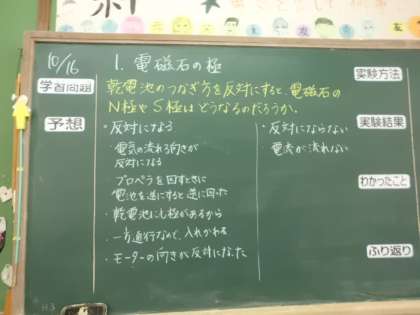 10/16
1. 電磁石の極
学習問題
乾電池のつなぎ方を反対にすると、電磁石の
N極やS極はどうなるのだろうか。
予想
・反対になる
・電気の流れる向きが
反対になる
・プロペラを回すときに
電池を逆にすると逆に回った
・乾電池にも極があるから
・一方通行なので、入れかわる
・モーターの向きが反対になった
・反対にならない
電流が流れない
実験方法
実験結果
わかったこと
ふり返り